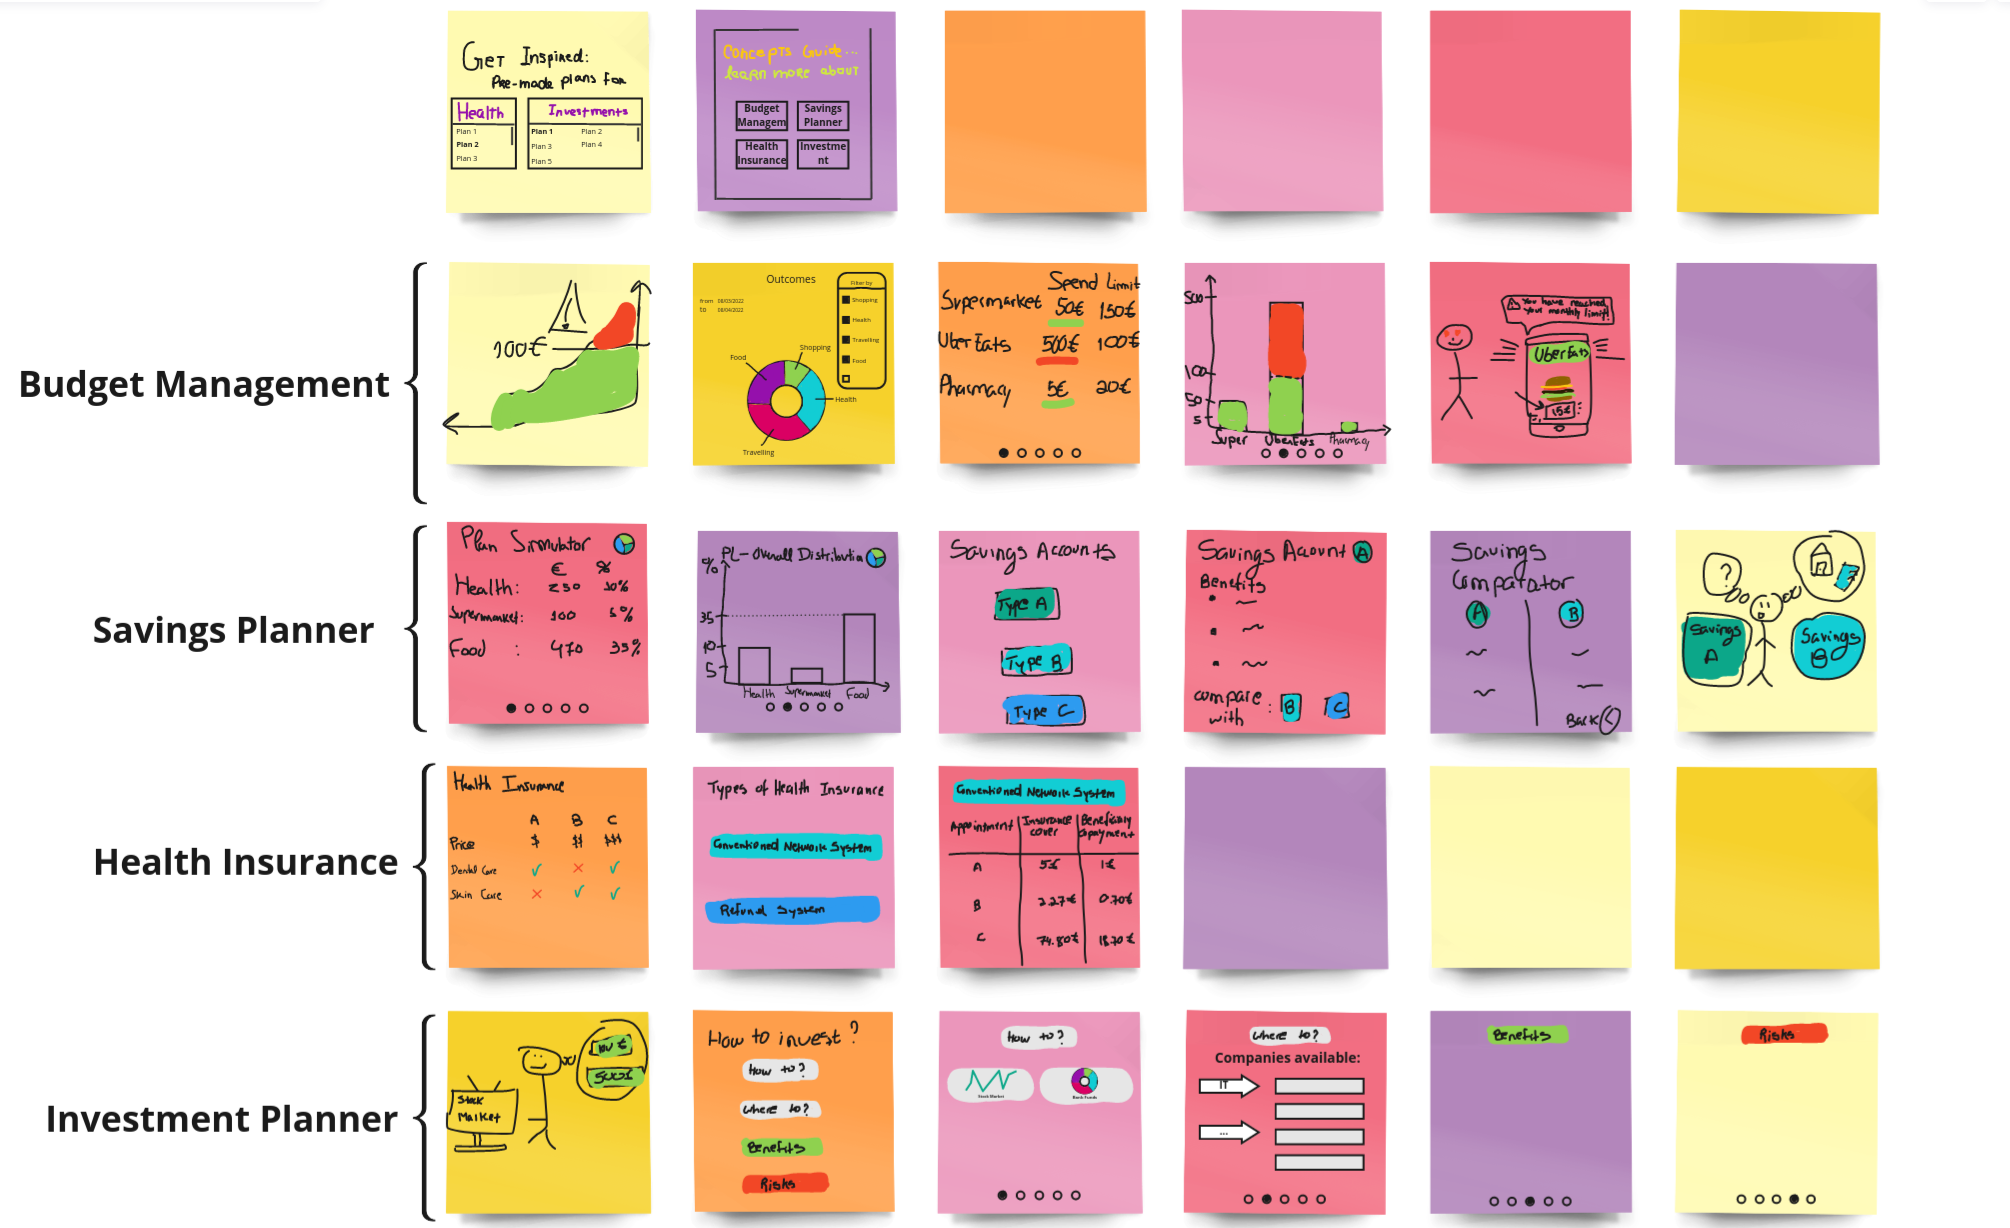 Get Inspired:
Pre-made plans for
Health
Plan 1
Plan 2
Plan 3
Investments
Plan 1 Plan 2
Plan 3 Plan 4
Plan 5
Concepts Guide...
learn more about
Budget
Managem
Savings
Planner
Health
Insurance
Investme
nt
Budget Management
100€
Outcomes
from 08/03/2022
to 08/04/2022
Filter by
Shopping
Health
Travelling
Food
Food
Shopping
Health
Travelling
Spend Limit
Supermarket 50€ 150€
UberEats 500€ 100€
Pharmacy 5€ 20€
500
100
50
5
Super UberEats Pharmacy
You have reached
your monthly limit!
UberEats
15€
Savings Planner
Plan Simulator
€ %
Health: 250 10%
Supermarket: 100 5%
Food : 470 35%
PL-Overall Distribution
%
35
10
5
Health Supermarket Food
Savings Accounts
Type A
Type B
Type C
Savings Acount A
Benefits
compare
with : B C
Savings
Comparator
A B
Back
?
Savings
A
Savings
B
Health Insurance
Health Insurance
A B C
Price $ $$ $$$
Dental Care ✓ × ✓
Skin Care × ✓ ✓
Types of Health Insurance
Conventioned Network System
Refund System
Conventioned Network System
Appointment Insurance cover Beneficiary copayment
A 5€ 1€
B 2.27€ 0.70€
C 74.80€ 18.70€
Investment Planner
Stock
Market
How to invest?
How to?
Where to?
Benefits
Risks
How to?
Stock Market
Bank Funds
Where to?
Companies available:
IT
...
Benefits
Risks